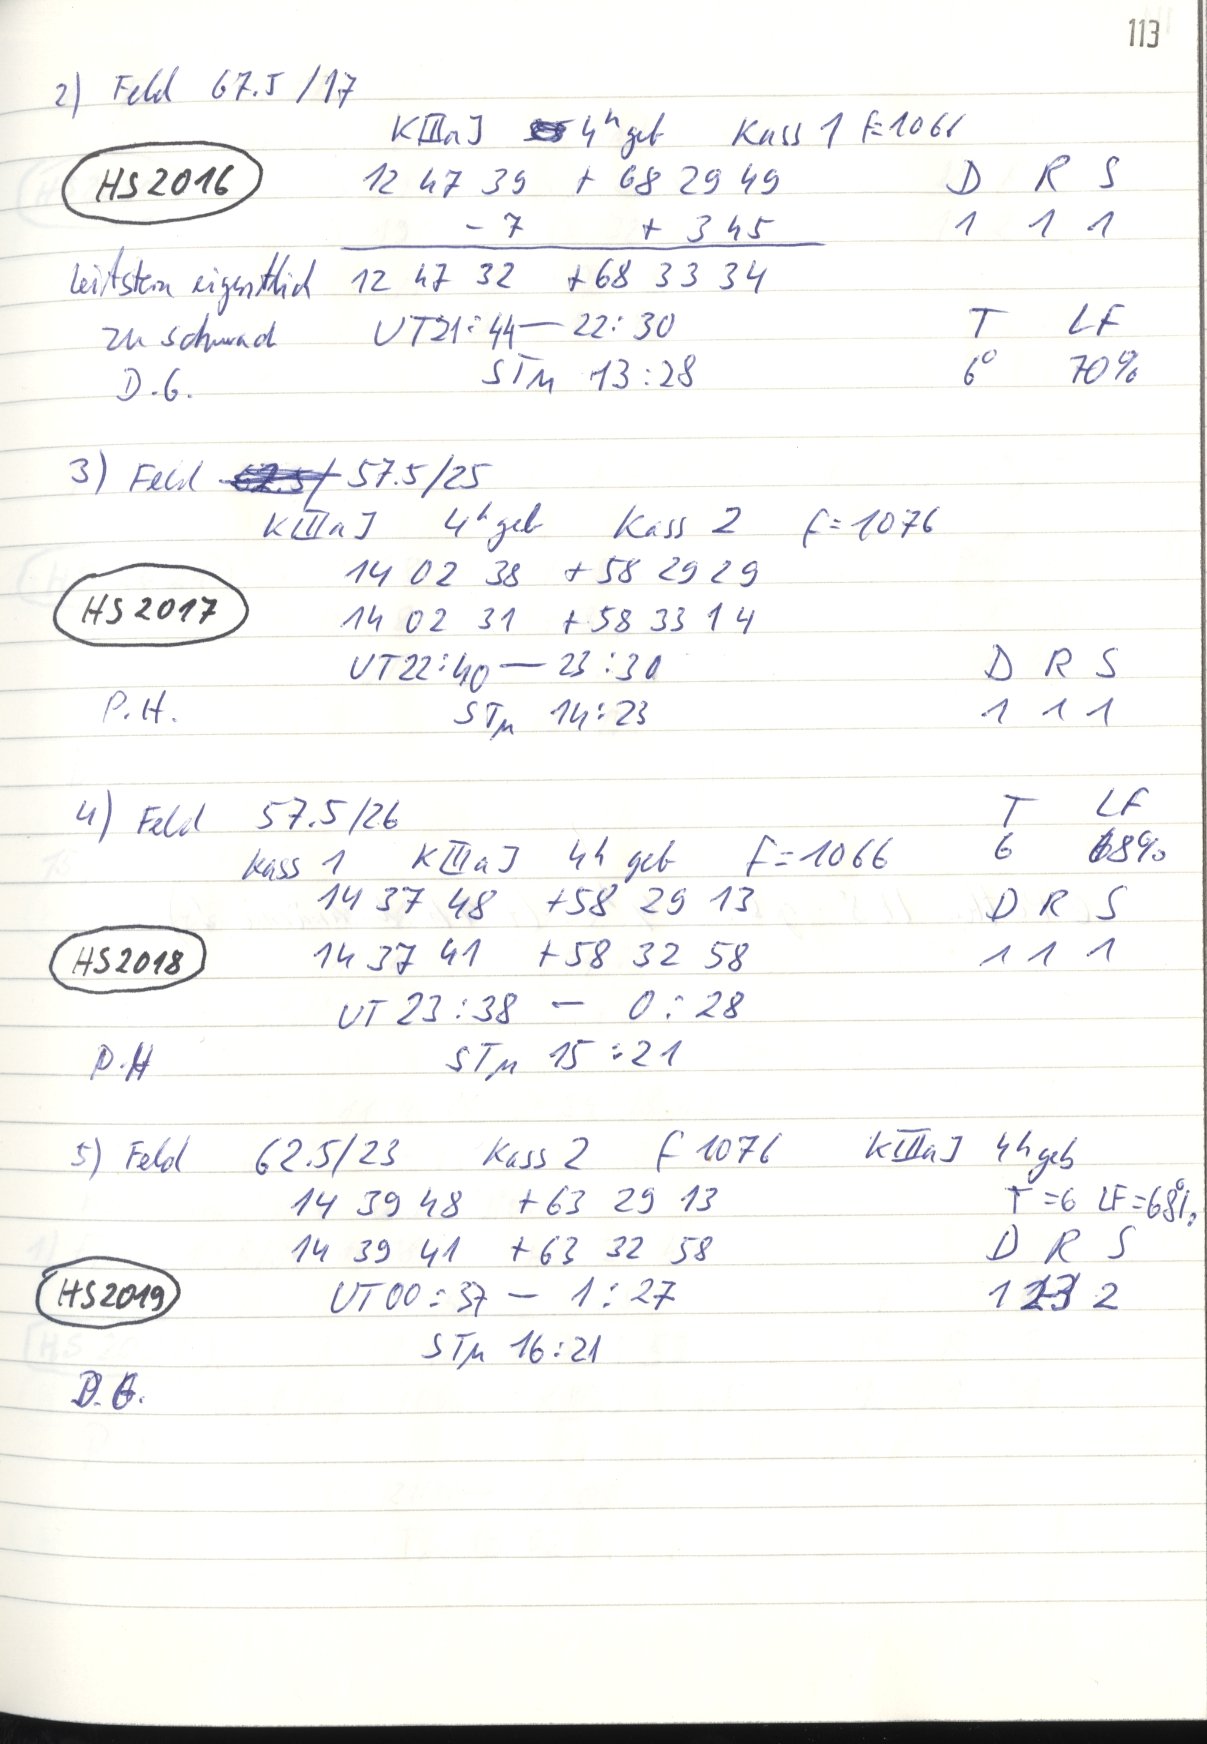 113
2) Feld 67.5/17
K[IIaJ 4h geb Kass 1 F=1066
HS2016 12 47 39 +68 29 49 D R S
-7 +3 45 1 1 1
Leitstern eigentlich 12 47 32 +68 33 34
zu schwach UT21:44 — 22:30 T LF
D.G. STM 13:28 6° 70%
3) Feld 57.5/25
K[IIaJ 4h geb Kass 2 f=1076
14 02 38 +58 29 29
HS2017 14 02 31 +58 33 14
UT22:40 — 23:30 D R S
P.H. STM 14:23 1 1 1
4) Feld 57.5/26 T LF
Kass 1 K[IIaJ 4h geb F=1066 6 68%
14 37 48 +58 29 13 D R S
HS2018 14 37 41 +58 32 58 1 1 1
UT 23:38 — 0:28
P.H STM 15:21
5) Feld 62.5/23 Kass 2 f 1076 K[IIaJ 4h geb
14 39 48 +63 29 13 T=6 LF=68%
14 39 41 +63 32 58 D R S
HS2019 UT00:37 — 1:27 1 2
STM 16:21
D.G.